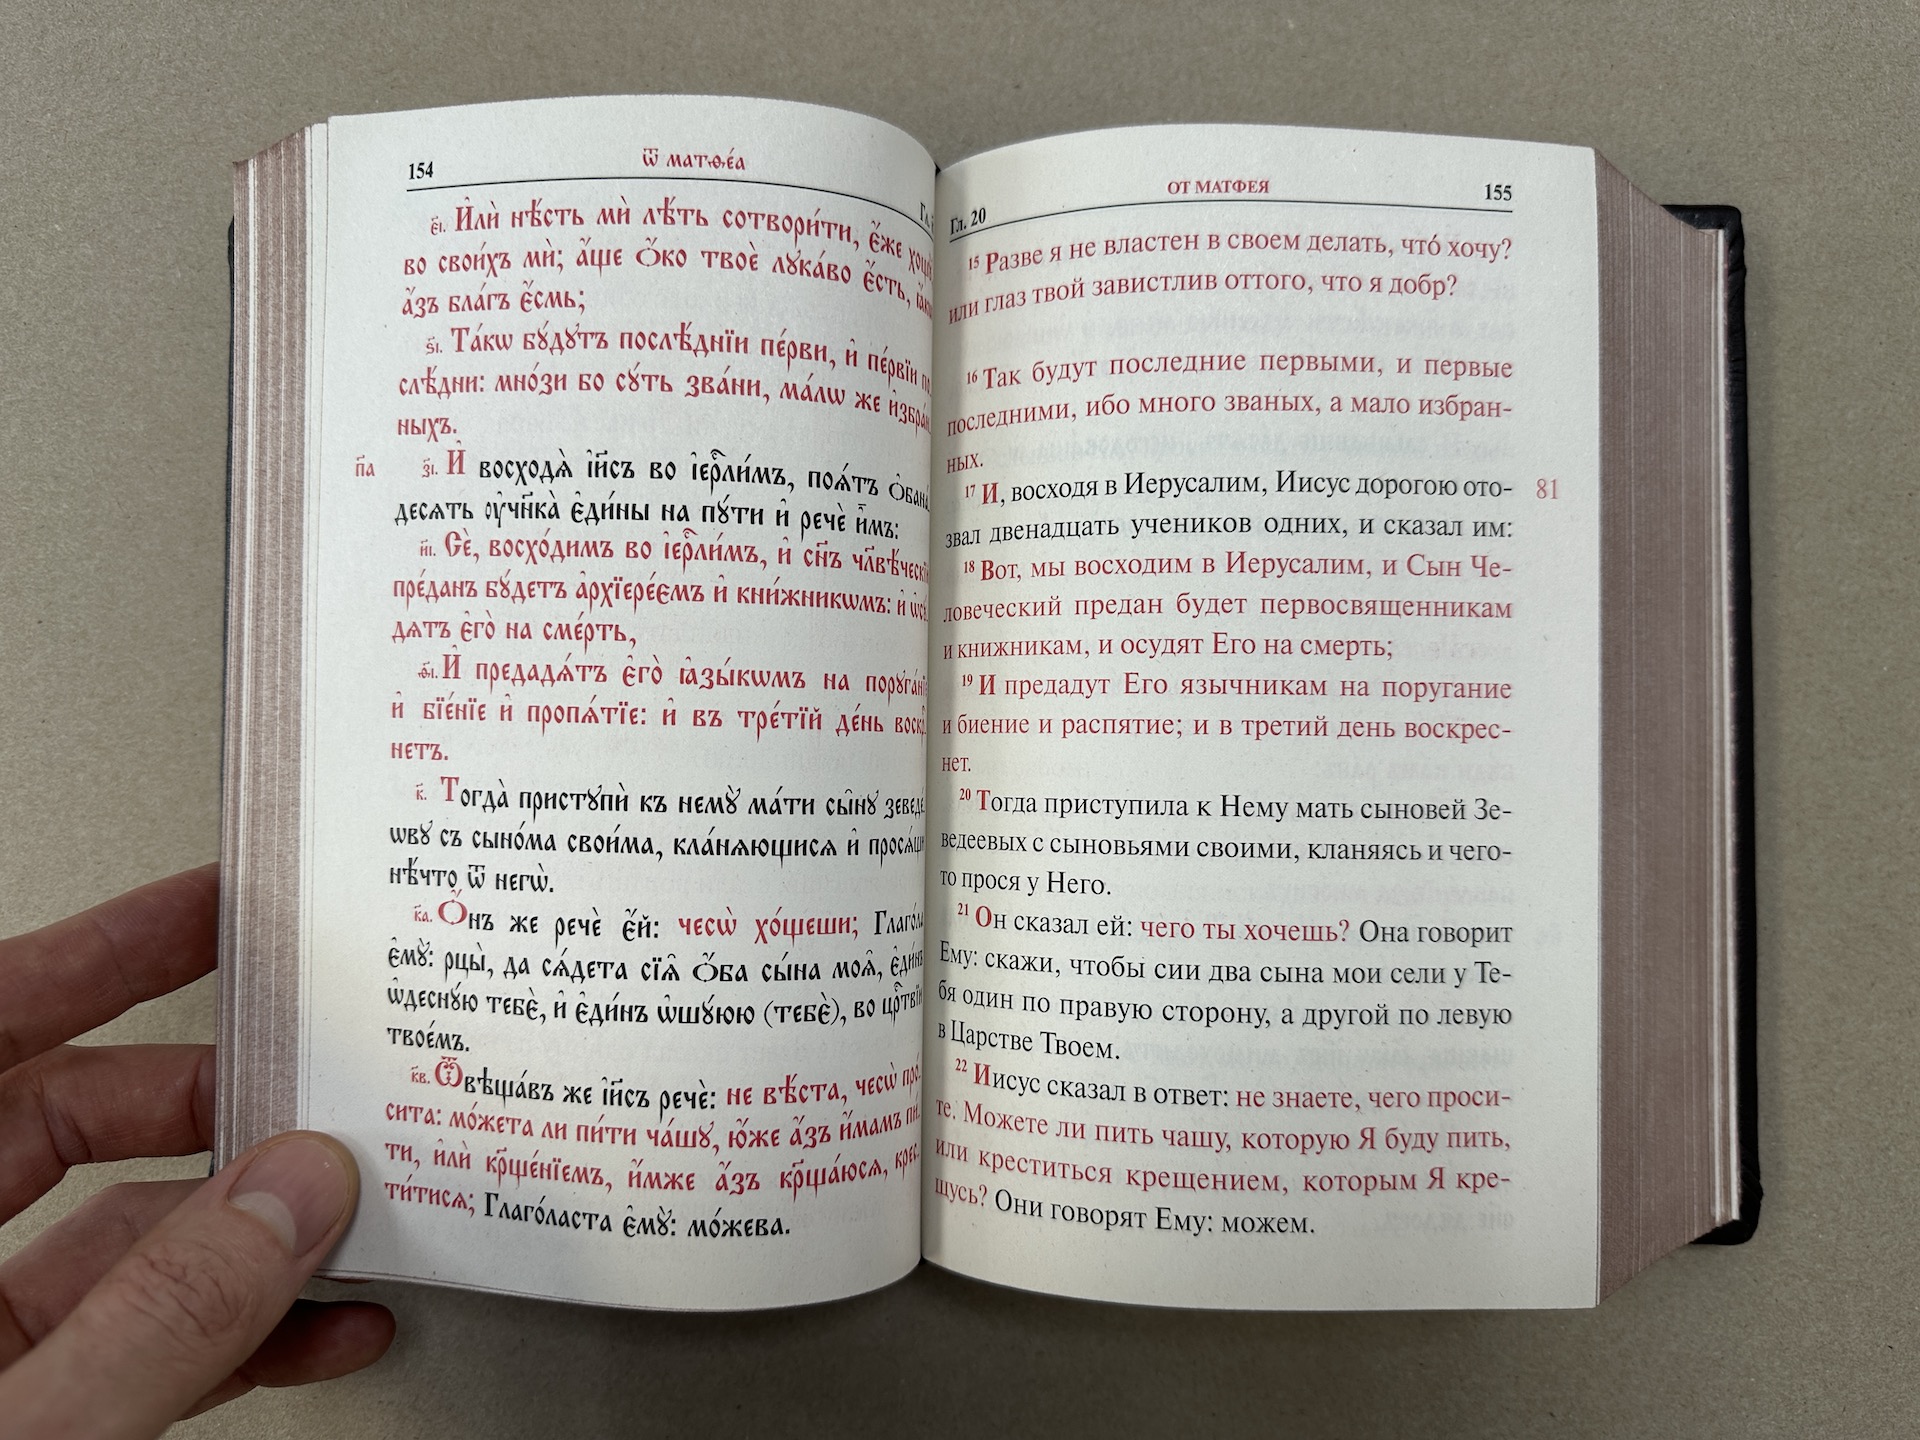 154
ѿ матѳе́а
є҃і. И҆лѝ нѣ́сть мѝ лѣ́ть сотвори́ти, є҆́же
во свои́хъ мѝ; а҆́ще ѻ҆́ко твоѐ лꙋка́во є҆́сть,
а҆́зъ бла́гъ є҆́смь;
ѕ҃і. Та́кѡ бꙋ́дꙋтъ послѣ́днїи пе́рви, и҆ пе́рвїи по-
слѣ́дни: мно́зи бо сꙋ́ть зва́ни, ма́лѡ же и҆збра́н-
ныхъ.
п҃а
з҃і. И҆ восходѧ̀ і҆и҃съ во і҆ерⷭ҇ли́мъ, поѧ́тъ ѻ҆бана́-
десѧть ᲂу҆чн҃ка̀ є҆ди́ны на пꙋтѝ и҆ речѐ и҆̀мъ:
и҃і. Сѐ, восхо́димъ во і҆ерⷭ҇ли́мъ, и҆ сн҃ъ чл҃вѣ́ческїй
пре́данъ бꙋ́детъ а҆рхїере́ємъ и҆ кни́жникѡмъ: и҆ ѡ҆сꙋ́-
дѧтъ є҆го̀ на сме́рть,
ѳ҃і. И҆ предадѧ́тъ є҆го̀ ꙗ҆зы́кѡмъ на порꙋга́нїе
и҆ бїе́нїе и҆ пропѧ́тїе: и҆ въ тре́тїй де́нь воскрⷭ҇-
нетъ.
к҃. Тогда̀ пристꙋпѝ къ немꙋ̀ ма́ти сы̑нꙋ зеведе́-
ѡвꙋ съ сыно́ма свои́ма, кла́нѧющисѧ и҆ просѧ́щи
нѣ́что ѿ негѡ̀.
к҃а. Ѻ҆́нъ же речѐ є҆́й: чесѡ̀ хо́щеши; Глаго́ла
є҆мꙋ̀: рцы̀, да сѧ́дета сїѧ̑ ѻ҆́ба сы́на моѧ̑, є҆ди́нъ
ѡ҆деснꙋ́ю тебє̀, и҆ є҆ди́нъ ѡ҆шꙋ́юю (тебє̀), во црⷭ҇твїи
твое́мъ.
к҃в. Ѿвѣща́въ же і҆и҃съ речѐ: не вѣ́ста, чесѡ̀ про́-
сита: мо́жета ли пи́ти ча́шꙋ, ю҆́же а҆́зъ и҆́мамъ пи́-
ти, и҆лѝ кр҃ще́нїемъ, и҆́мже а҆́зъ кр҃ща́юсѧ, крес-
ти́тисѧ; Глаго́ласта є҆мꙋ̀: мо́жева.
Гл. 20
ОТ МАТФЕЯ
155
15 Разве я не властен в своем делать, что́ хочу?
или глаз твой завистлив оттого, что я добр?
16 Так будут последние первыми, и первые
последними, ибо много званых, а мало избран-
ных.
17 И, восходя в Иерусалим, Иисус дорогою ото-
81
звал двенадцать учеников одних, и сказал им:
18 Вот, мы восходим в Иерусалим, и Сын Че-
ловеческий предан будет первосвященникам
и книжникам, и осудят Его на смерть;
19 И предадут Его язычникам на поругание
и биение и распятие; и в третий день воскрес-
нет.
20 Тогда приступила к Нему мать сыновей Зе-
ведеевых с сыновьями своими, кланяясь и чего-
то прося у Него.
21 Он сказал ей: чего ты хочешь? Она говорит
Ему: скажи, чтобы сии два сына мои сели у Те-
бя один по правую сторону, а другой по левую
в Царстве Твоем.
22 Иисус сказал в ответ: не знаете, чего проси-
те. Можете ли пить чашу, которую Я буду пить,
или креститься крещением, которым Я кре-
щусь? Они говорят Ему: можем.